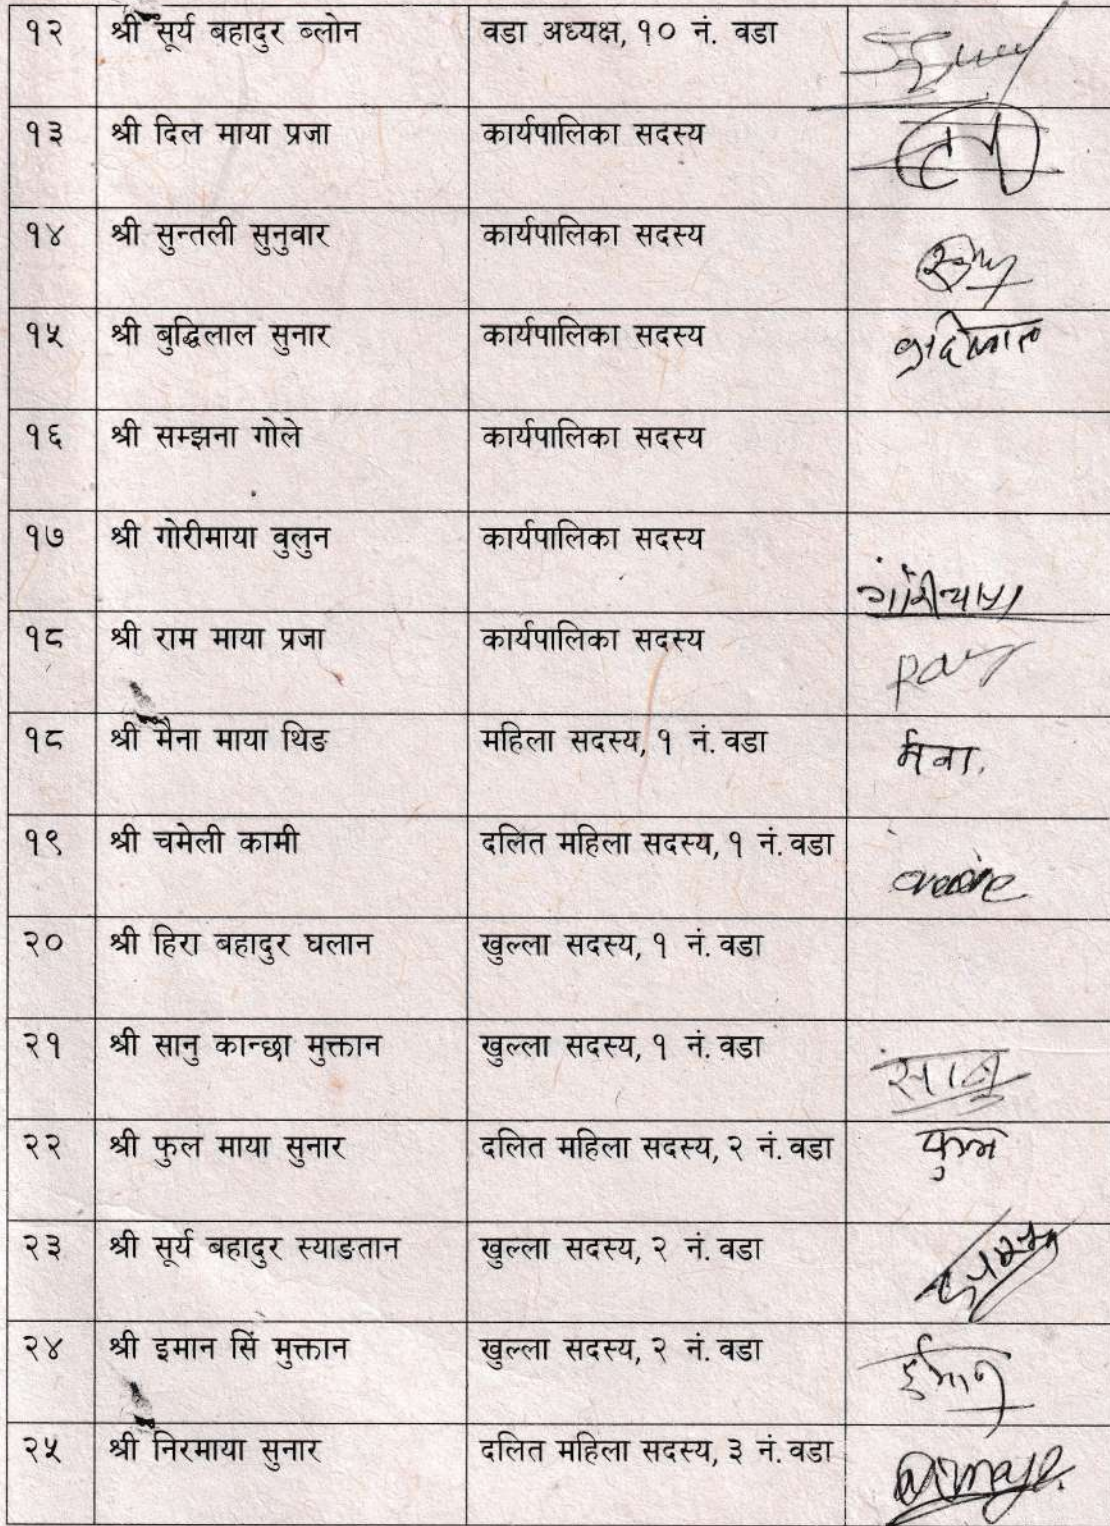 १२ श्री सूर्य बहादुर ब्लोन वडा अध्यक्ष, १० नं. वडा
१३ श्री दिल माया प्रजा कार्यपालिका सदस्य
१४ श्री सुन्तली सुनुवार कार्यपालिका सदस्य
१५ श्री बुद्धिलाल सुनार कार्यपालिका सदस्य
१६ श्री सम्झना गोले कार्यपालिका सदस्य
१७ श्री गोरीमाया वुलुन कार्यपालिका सदस्य
१८ श्री राम माया प्रजा कार्यपालिका सदस्य
१८ श्री मैना माया थिङ महिला सदस्य, १ नं. वडा मैना.
१९ श्री चमेली कामी दलित महिला सदस्य, १ नं. वडा
२० श्री हिरा बहादुर घलान खुल्ला सदस्य, १ नं. वडा
२१ श्री सानु कान्छा मुक्तान खुल्ला सदस्य, १ नं. वडा
२२ श्री फुल माया सुनार दलित महिला सदस्य, २ नं. वडा फुल
२३ श्री सूर्य बहादुर स्याङतान खुल्ला सदस्य, २ नं. वडा
२४ श्री इमान सिं मुक्तान खुल्ला सदस्य, २ नं. वडा
२५ श्री निरमाया सुनार दलित महिला सदस्य, ३ नं. वडा